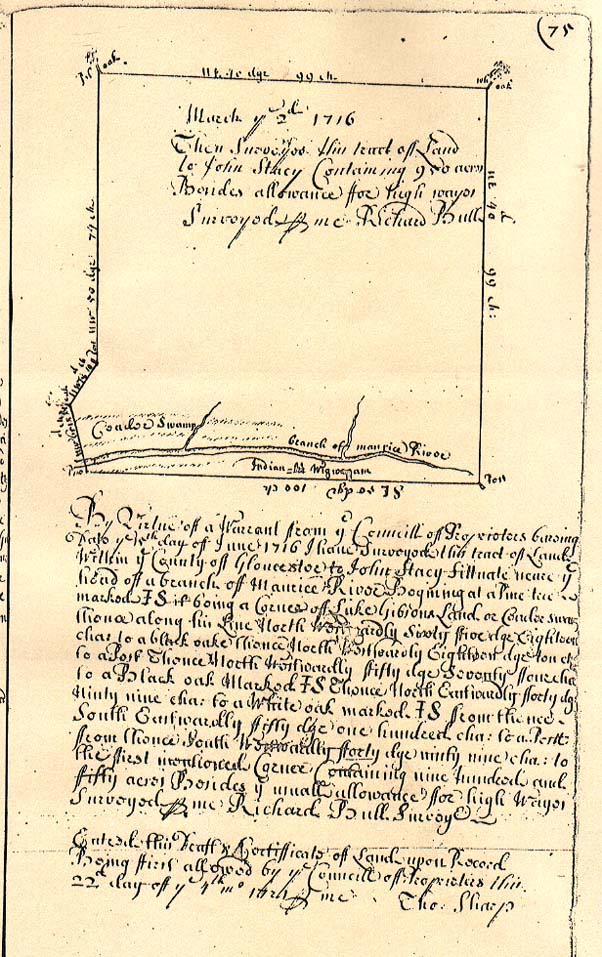 (75
Nt: 40 dgr 99 ch.
oak
oak
March ye 2d 1716
Then Surveyed this tract off Land
to John Stacy Containing 950 acres
Besides allowance ffor high wayes
Surveyed p me Richard Bull
Nt 40 d
99 ch:
NW 50 dgr 74 ch
Ceador Swamp
branch of maurice River
Indian Wigwam
Post
SE 50 dgr 100 ch.
By Virtue off a Warrant ffrom ye Councill off Proprieters bearing
Date ye day of June 1716 I have Surveyed this tract off Land
Within ye County off Gloucester to John Stacy Sittuate neare ye
head off a branch off Maurice River Begining at a Pine tree
marked IS it being a Corner off Luke Gibsons Land or Ceador Swamp
thence along his Line North Westwardly Sixty ffive dgr Eighteen
cha: to a black oake thence North Westwardly Eighteen dgr ten ch:
to a Post Thence North Westwardly ffifty dgr Seventy ffour cha:
to a Black oak Marked IS Thence North Eastwardly fforty dgr
Ninty nine cha: to a White oak marked IS from thence
South Eastwardly ffifty dgr one hundred cha: to a Post
from thence South Westwardly fforty dgr ninty nine cha: to
the first mentioned Corner Containing nine hundred and
ffifty acres Besides ye usuall allowance ffor high Wayes
Surveyed p me Richard Bull Surveyr
Entered this Draft & Certifficate of Land upon Record
Being ffirst allowed by ye Councill off Proprieties this
22d day off ye 4th mo p me Tho: Sharp